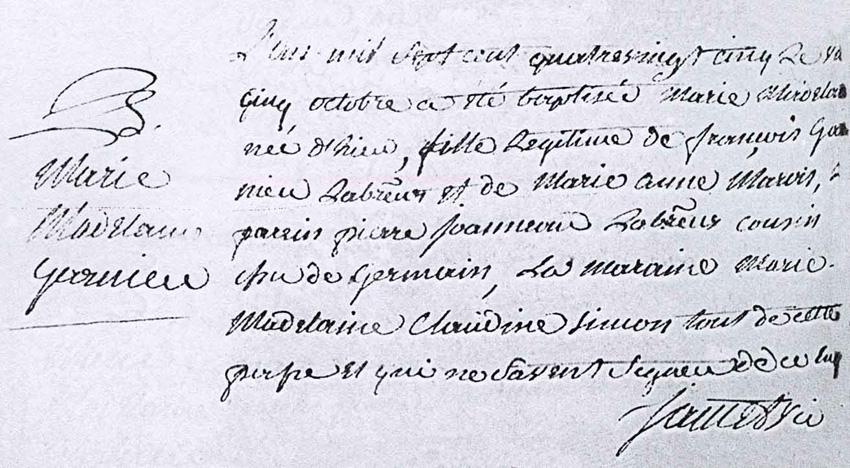 B.
Marie
Madelaine
Garnier
L'an mil sept cent quatrevingt cinq le
cinq octobre a été baptisée Marie Madelai
née d'hier, fille legitime de françois Gar
nier Labreur et de Marie anne Marvis,
parrin pierre Joanneau Labreur cousin
de Germain, La maraine Marie
Madelaine Claudine Simon tout de cette
et qui ne savent signer de ce